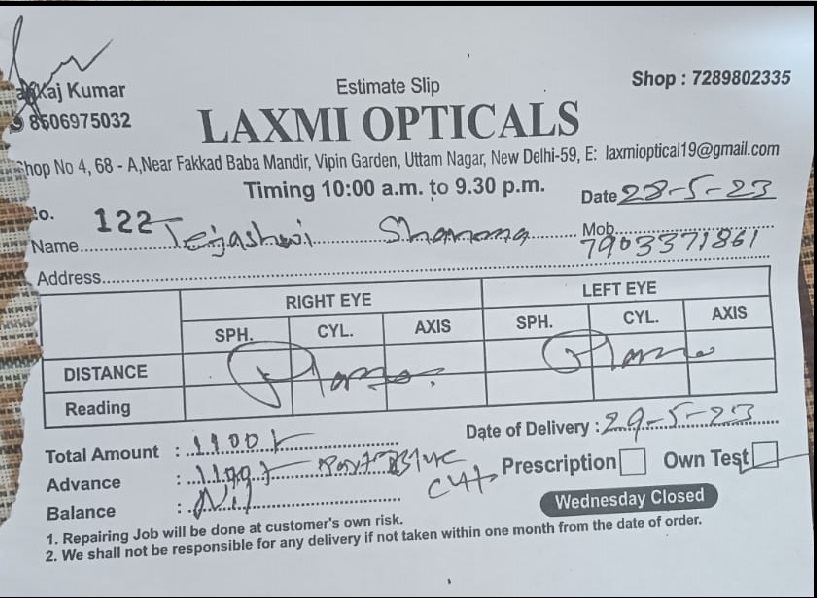 Kaj Kumar
8506975032
Estimate Slip
Shop : 7289802335
LAXMI OPTICALS
Shop No 4, 68 - A,Near Fakkad Baba Mandir, Vipin Garden, Uttam Nagar, New Delhi-59, E: laxmioptical19@gmail.com
Timing 10:00 a.m. to 9.30 p.m.
Date 28-5-23
No. 122
Name Tejashwi
Mob. 7903371861
Address
RIGHT EYE LEFT EYE
SPH. CYL. AXIS SPH. CYL. AXIS
DISTANCE
Reading
Total Amount :
Date of Delivery : 29-5-23
Advance :
Blue Cut
Prescription Own Test
Balance : Nil
Wednesday Closed
1. Repairing Job will be done at customer's own risk.
2. We shall not be responsible for any delivery if not taken within one month from the date of order.